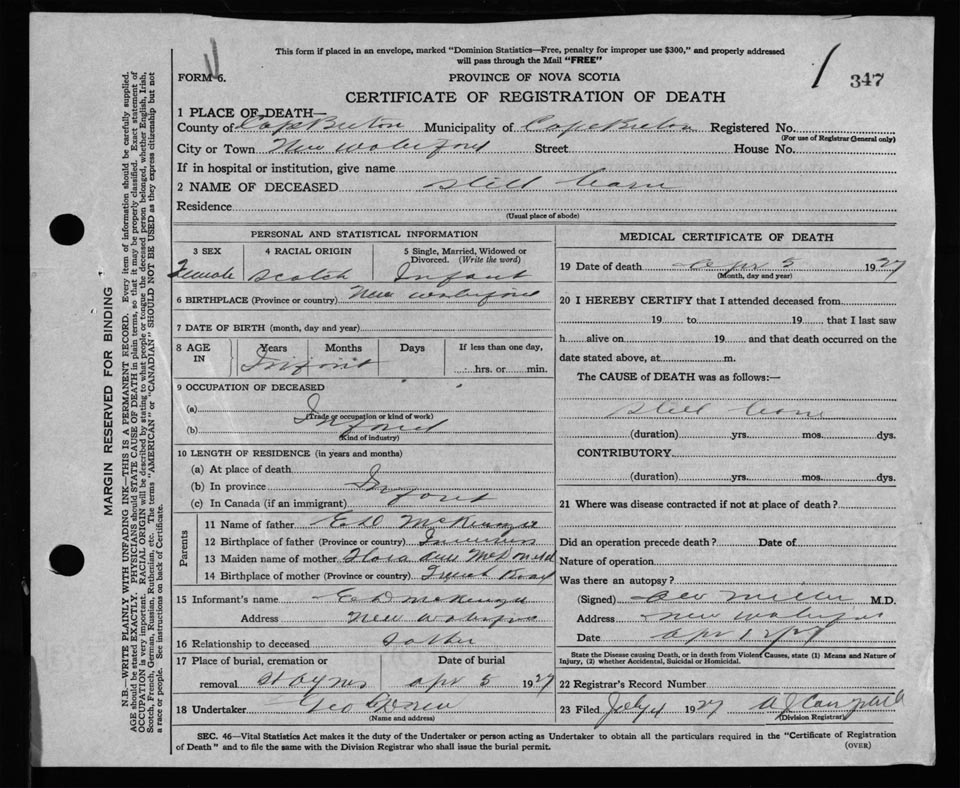 This form if placed in an envelope, marked "Dominion Statistics—Free, penalty for improper use $300," and properly addressed
will pass through the Mail "FREE"
FORM 6.
PROVINCE OF NOVA SCOTIA
1 347
CERTIFICATE OF REGISTRATION OF DEATH
1 PLACE OF DEATH—
County of Cape Breton Municipality of Cape Breton Registered No.
(For use of Registrar General only)
City or Town New Waterford Street House No.
If in hospital or institution, give name
2 NAME OF DECEASED still born
Residence
(Usual place of abode)
PERSONAL AND STATISTICAL INFORMATION
3 SEX 4 RACIAL ORIGIN 5 Single, Married, Widowed or Divorced. (Write the word)
Female Scotch Infant
6 BIRTHPLACE (Province or country) New Waterford
7 DATE OF BIRTH (month, day and year)
8 AGE IN Years Months Days If less than one day,
Infant hrs. or min.
9 OCCUPATION OF DECEASED
(a)
(Trade or occupation or kind of work)
(b) Infant
(Kind of industry)
10 LENGTH OF RESIDENCE (in years and months)
(a) At place of death
(b) In province Infant
(c) In Canada (if an immigrant)
Parents
11 Name of father Ed McKenzie
12 Birthplace of father (Province or country) Inverness
13 Maiden name of mother Flora Ann McDonald
14 Birthplace of mother (Province or country) French Road
15 Informant's name Ed McKenzie
Address New Waterford
16 Relationship to deceased Father
17 Place of burial, cremation or removal Date of burial
St Agnes apr 5 1927
18 Undertaker Geo
(Name and address)
MEDICAL CERTIFICATE OF DEATH
19 Date of death apr 5 1927
(Month, day and year)
20 I HEREBY CERTIFY that I attended deceased from
19 to 19 that I last saw
h alive on 19 and that death occurred on the
date stated above, at m.
The CAUSE of DEATH was as follows:—
still born
(duration) yrs. mos. dys.
CONTRIBUTORY
(duration) yrs. mos. dys.
21 Where was disease contracted if not at place of death?
Did an operation precede death? Date of
Nature of operation
Was there an autopsy?
(Signed) Geo Miller M.D.
Address New Waterford
Date apr
State the Disease causing Death, or in death from Violent Causes, state (1) Means and Nature of
Injury, (2) whether Accidental, Suicidal or Homicidal.
22 Registrar's Record Number
23 Filed July 1927 A J Campbell
(Division Registrar)
SEC. 46—Vital Statistics Act makes it the duty of the Undertaker or person acting as Undertaker to obtain all the particulars required in the "Certificate of Registration
of Death" and to file the same with the Division Registrar who shall issue the burial permit.
(OVER)
MARGIN RESERVED FOR BINDING
N.B.—WRITE PLAINLY WITH UNFADING INK—THIS IS A PERMANENT RECORD. Every item of information should be carefully supplied.
AGE should be stated EXACTLY. PHYSICIANS should STATE CAUSE OF DEATH in plain terms, so that it may be properly classified. Exact statement of
OCCUPATION is very important. RACIAL ORIGIN will be described by stating to what people or tongue the deceased person belonged, whether English, Irish,
Scotch, French, German, Russian, Ruthenian, etc. The terms "AMERICAN" or "CANADIAN" SHOULD NOT BE USED as they express citizenship but not
a race or people. See instructions on back of Certificate.